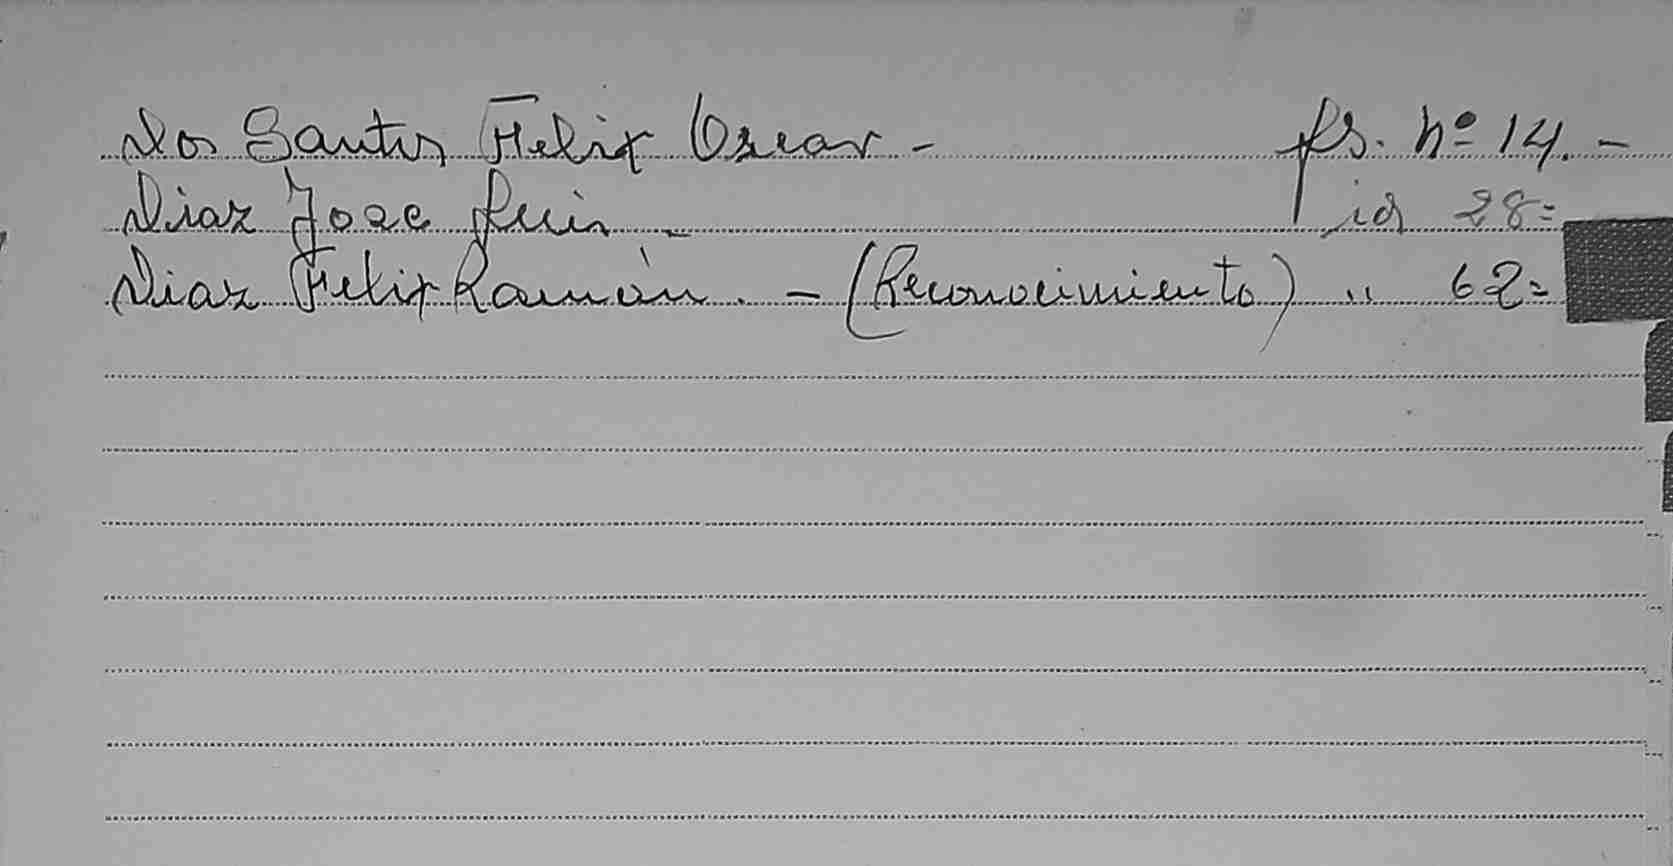 Dos Santos Felix Oscar - fs. Nº 14. -
Diaz Jose Luis - id 28=
Diaz Felix Ramón. - (Reconocimiento) " 62=